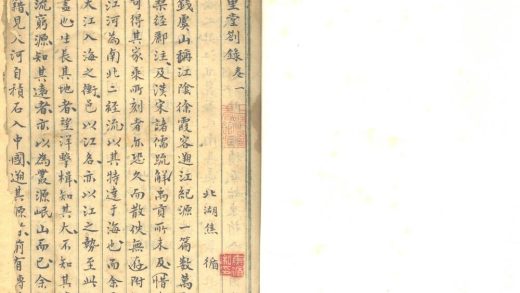 里堂別錄卷一
北湖焦循
錢虞山稱江陰徐霞客遡江紀源一篇數萬
桑經酈注及漢宋諸儒疏解禹貢所未及惜
可得其家乘所刻者亦恐久而散佚無迹附
江河為南北二經流以其特達于海也而余
大江入海之衝邑以江名亦以江之勢至此
盡也生長其地者望洋擊楫知其大不知其
流窮源知其遠者亦以為發源岷山而已余
籍見大河自積石入中國遡其源者前有專